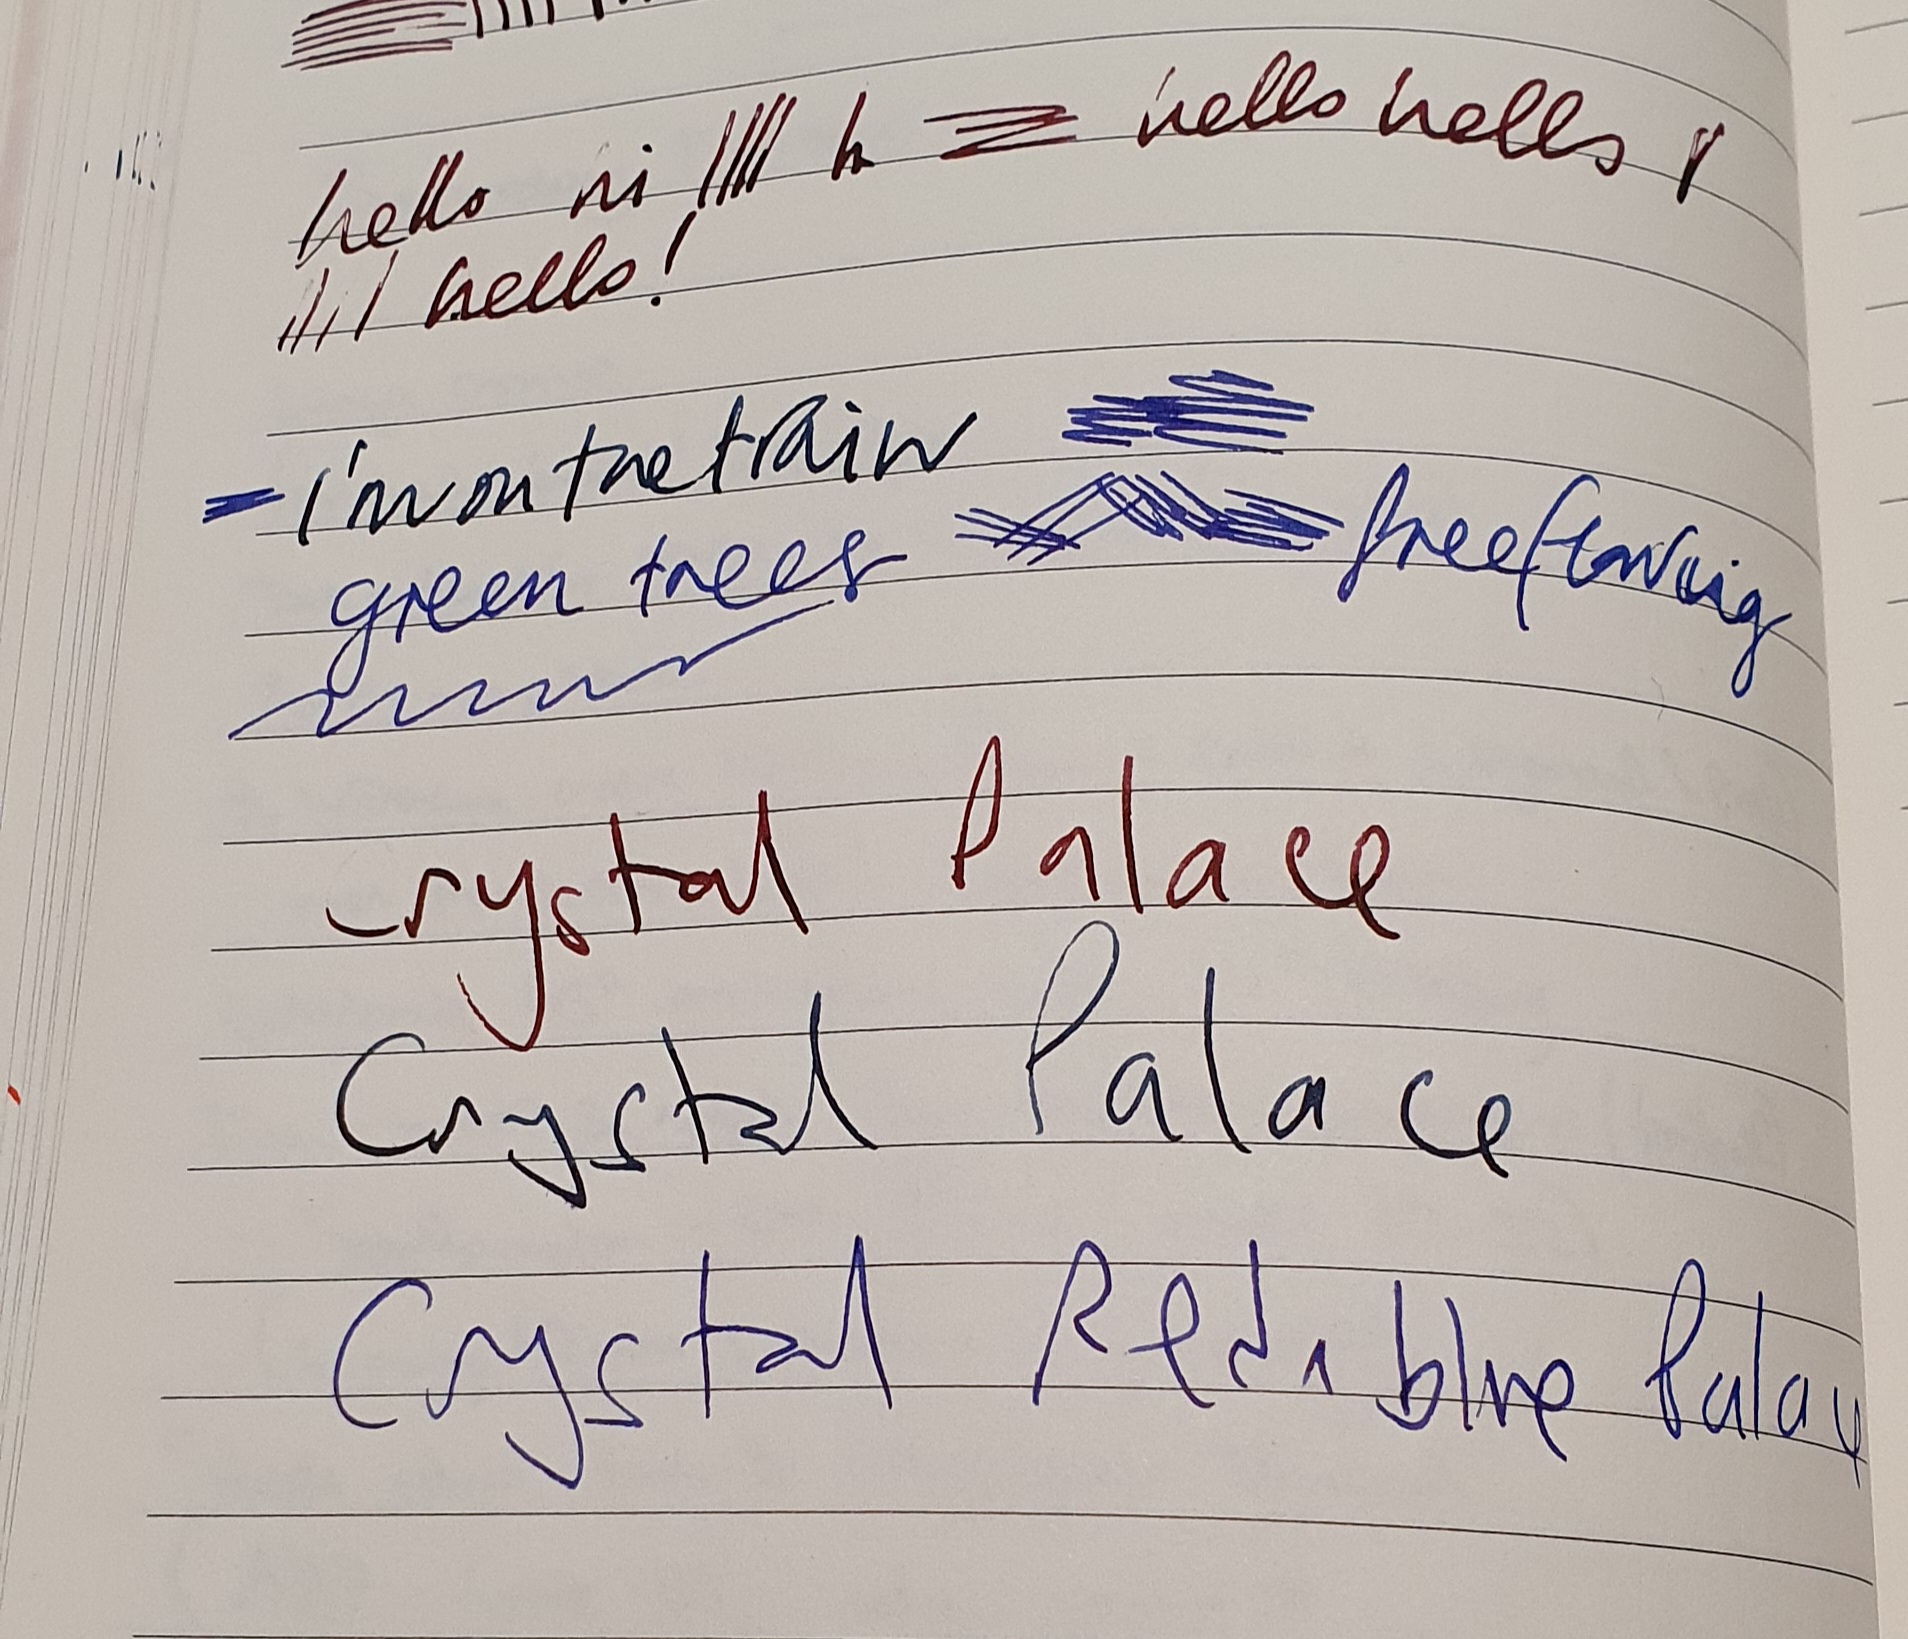 hello hi h hello hello
hello!
- i'm on the train
green trees freeflowing
Crystal Palace
Crystal Palace
Crystal Red n blue Palace